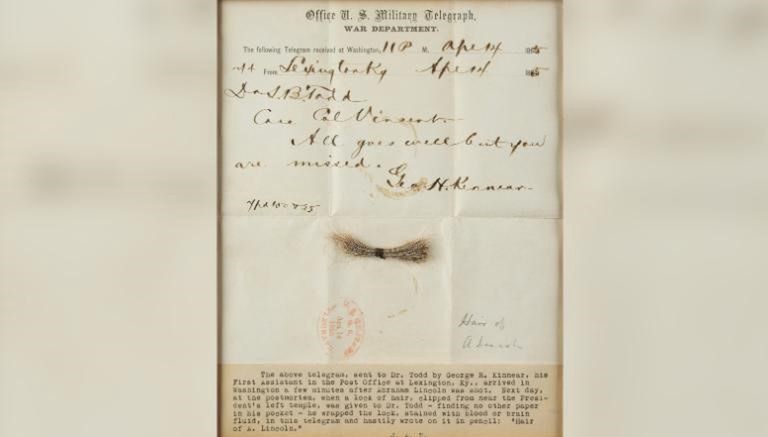 Office U. S. Military Telegraph,
WAR DEPARTMENT.
The following Telegram received at Washington, 11 P M. Apl 14 1865
From Lexington Ky Apl 14 1865
Dr L. B. Todd
Care Col Vincent.
All goes well but you
are missed.
Geo. H. Kinnear.
Hair of
A Lincoln
The above telegram, sent to Dr. Todd by George H. Kinnear, his
First Assistant in the Post Office at Lexington, Ky., arrived in
Washington a few minutes after Abraham Lincoln was shot. Next day,
at the postmortem, when a lock of hair, clipped from near the Presi-
dent's left temple, was given to Dr. Todd - finding no other paper
in his pocket - he wrapped the lock, stained with blood or brain
fluid, in this telegram and hastily wrote on it in pencil: "Hair
of A. Lincoln."